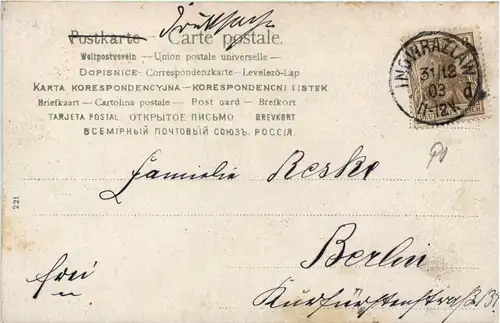 Drucksache
Postkarte — Carte postale.
Weltpostverein — Union postale universelle —
DOPISNICE - Correspondenzkarte - Levelező-Lap
KARTA KORESPONDENCYJNA — KORESPONDENCNI LISTEK
Briefkaart — Cartolina postale — Post card — Brefkort
TARJETA POSTAL ОТКРЫТОЕ ПИСЬМО BREVKORT
ВСЕМІРНЫЙ ПОЧТОВЫЙ СОЮЗЪ. РОССІЯ.
INOWRAZLAW
31/12
03
11-12V.
d
Familie Resko
Berlin
frei
Kurfürstenstraße
221